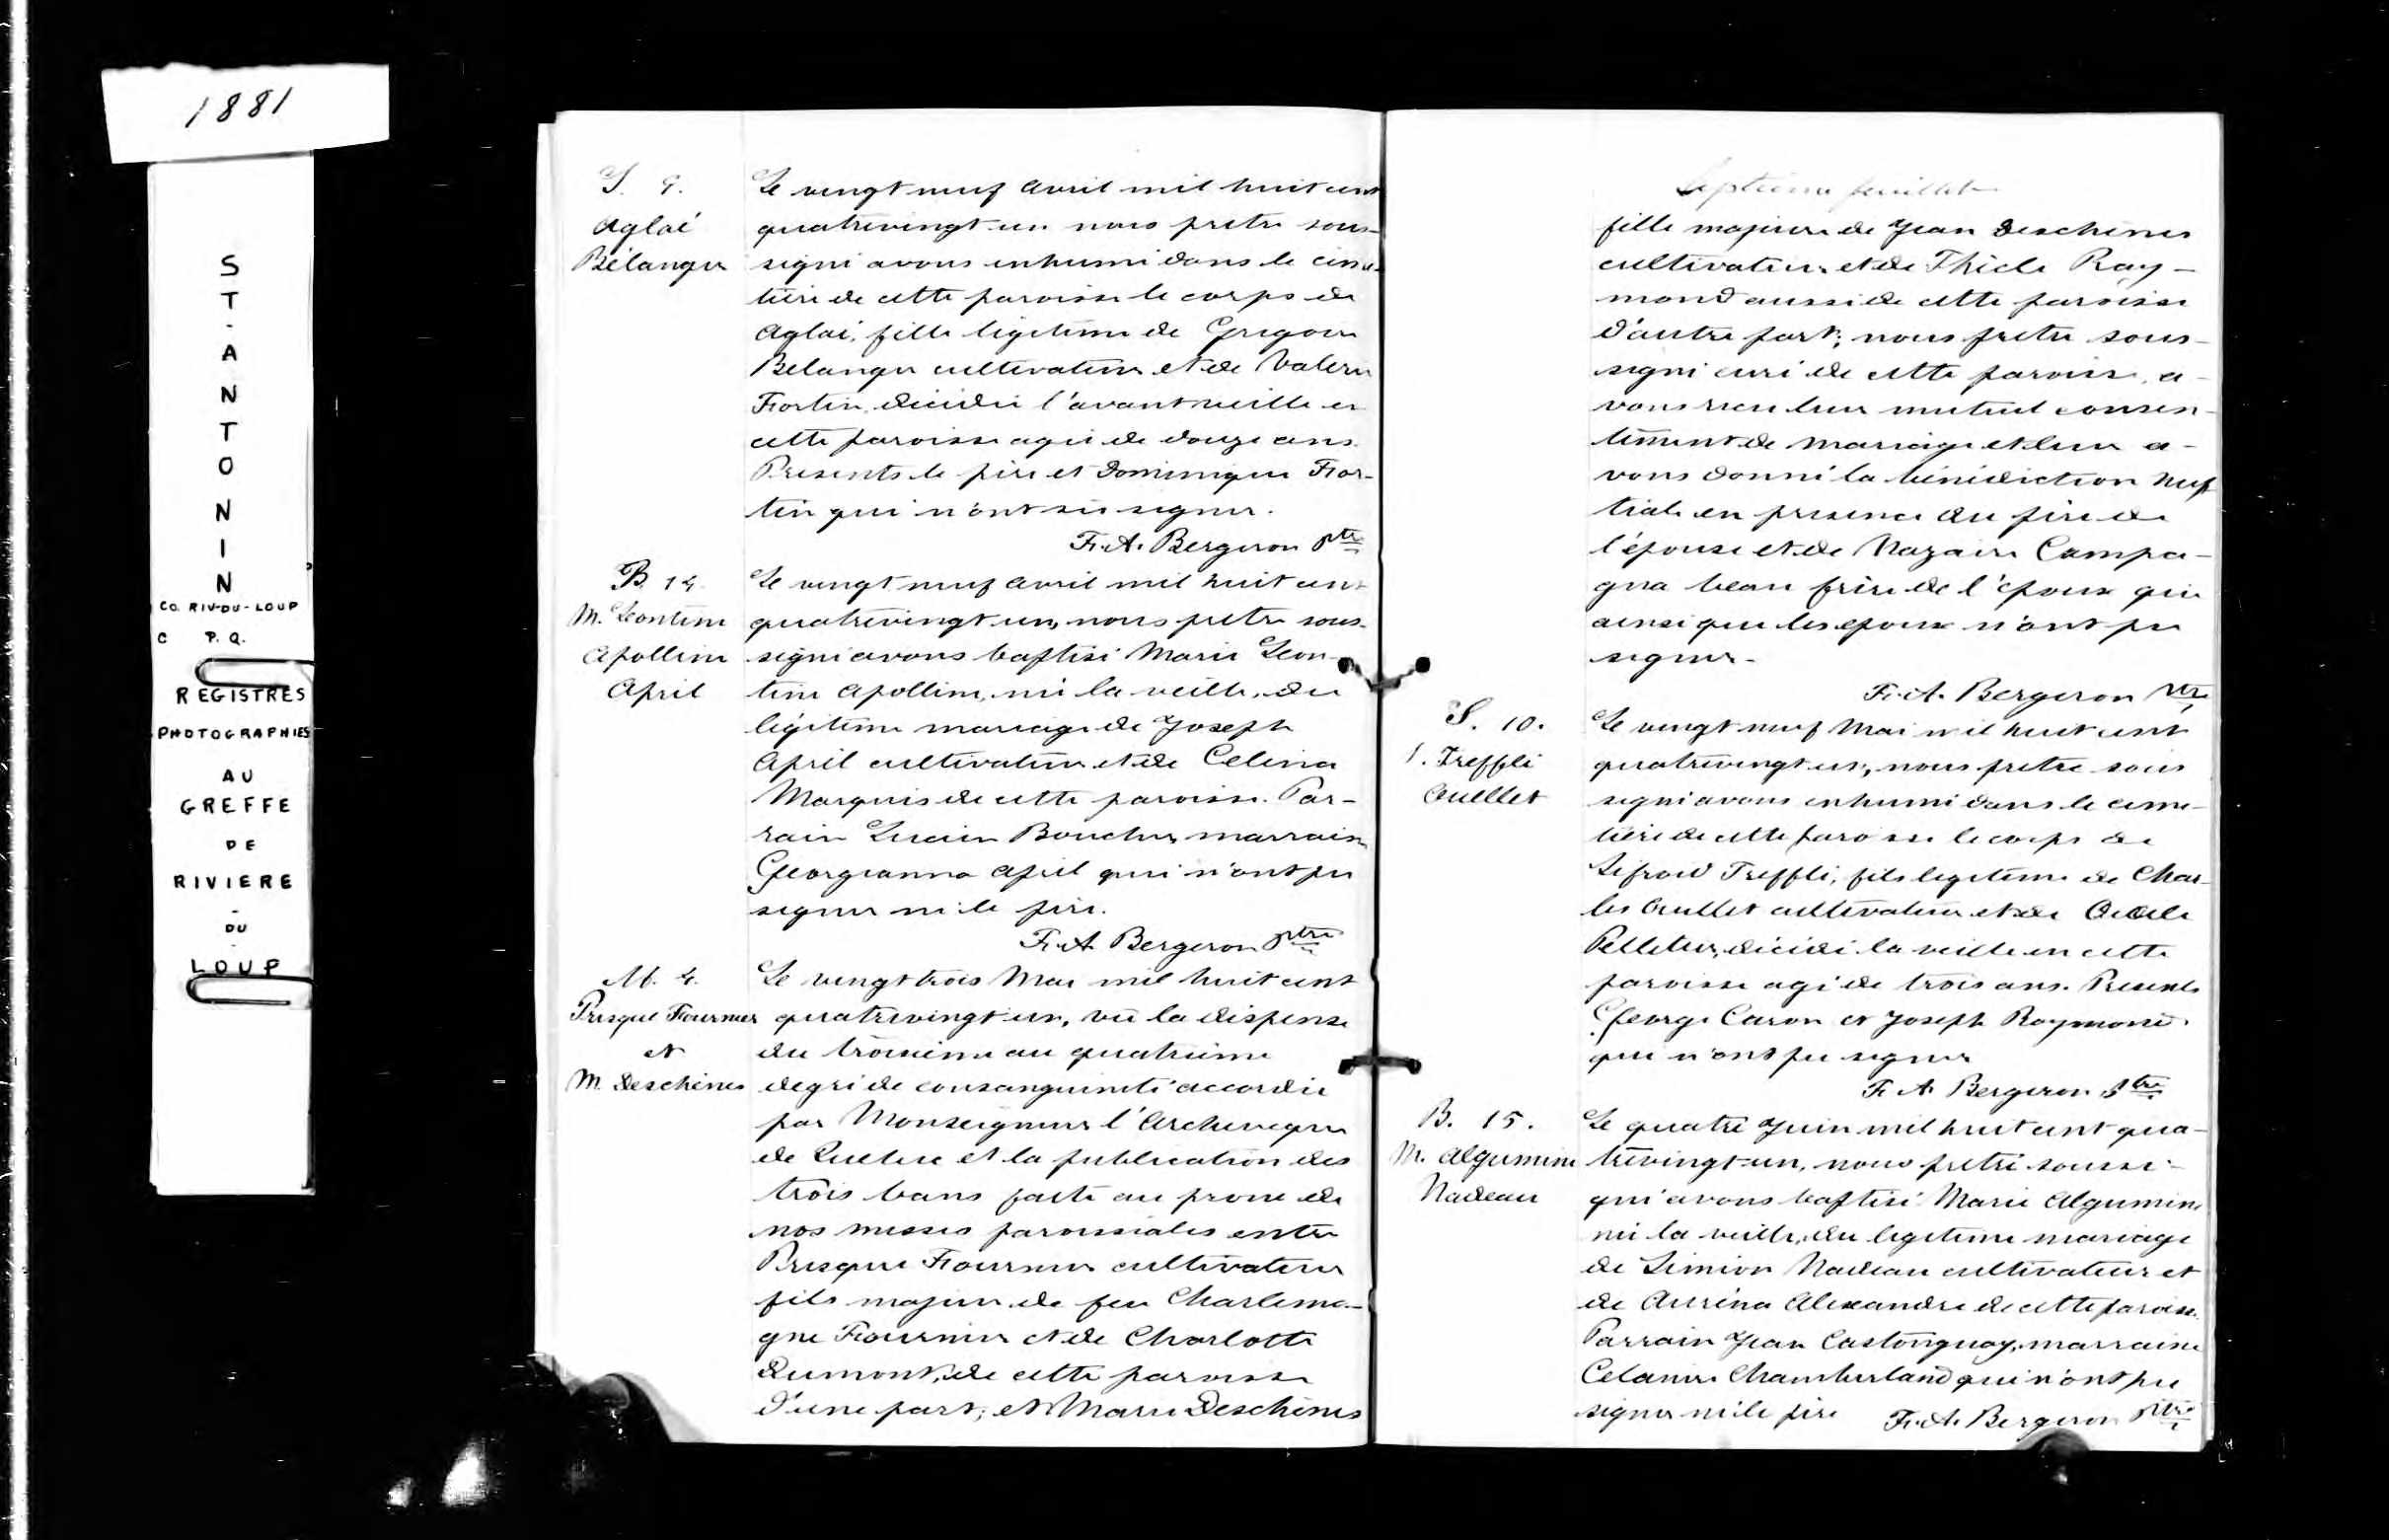 1881
ST-ANTONIN
CO. RIV-DU-LOUP
C P.Q.
REGISTRES
PHOTOGRAPHIES
AU
GREFFE
DE
RIVIERE
-
DU
-
LOUP
S. 9.
Aglaé
Bélanger
Le vingt neuf Avril mil huit cent
quatrevingt un nous prêtre sous-
signé avons inhumé dans le cime-
tière de cette paroisse le corps de
Aglaé, fille légitime de Grégoire
Belanger cultivateur et de Valérie
Fortin, décédée l'avant veille en
cette paroisse agée de douze ans.
Présents le père et Dominique For-
tin qui n'ont su signer.
F.A. Bergeron Ptre
B. 14
M. Leontine
Apolline
April
Le vingt neuf Avril mil huit cent
quatrevingt un, nous prêtre sous-
signé avons baptisé Marie Léon-
tine Apolline, née la veille, du
légitime mariage de Joseph
April cultivateur et de Celina
Marquis de cette paroisse. Par-
rain Lucien Boucher, marraine
Georgianna April qui n'ont pu
signer ni le père.
F.A Bergeron Ptre
M. 4.
Presque Fournier
et
M. Deschènes
Le vingt trois Mai mil huit cent
quatrevingt un, vu la dispense
du troisième au quatrième
degré de consanguinité accordée
par Monseigneur l'Archevêque
de Québec et la publication des
trois bans faite au prône de
nos messes paroissiales entre
Presque Fournier cultivateur
fils majeur de feu Charlema-
gne Fournier et de Charlotte
Dumont, de cette paroisse
d'une part; et Marie Deschènes
Septième feuillet
fille majeure de Jean Deschènes
cultivateur et de Thècle Ray-
mond aussi de cette paroisse
d'autre part; nous prêtre sous-
signé curé de cette paroisse, a-
vons reçu leur mutuel consen-
tement de mariage et leur a-
vons donné la bénédiction nup
tiale en présence du père de
l'épouse et de Nazaire Campa-
gna beau frère de l'époux qui
ainsi que les époux n'ont pu
signer.
F.A. Bergeron Ptre
S. 10.
S. Treffli
Ouellet
Le vingt neuf Mai mil huit cent
quatrevingt un, nous prêtre sous
signé avons inhumé dans le cime-
tière de cette paroisse le corps de
Sifroid Treffli, fils légitime de Char-
les Ouellet cultivateur et de Odile
Pelletier, décédé la veille en cette
paroisse agé de trois ans. Présents
George Caron et Joseph Raymond
qui n'ont pu signer
F A Bergeron Ptre
B. 15.
M. Algumine
Nadeau
Le quatre Juin mil huit cent qua-
trevingt un, nous prêtre soussi-
gné avons baptisé Marie Algumine
née la veille, du légitime mariage
de Siméon Nadeau cultivateur et
de Auréna Alexandre de cette paroisse.
Parrain Jean Castonguay, marraine
Célanire Chamberland qui n'ont pu
signer ni le père F.A. Bergeron Ptre